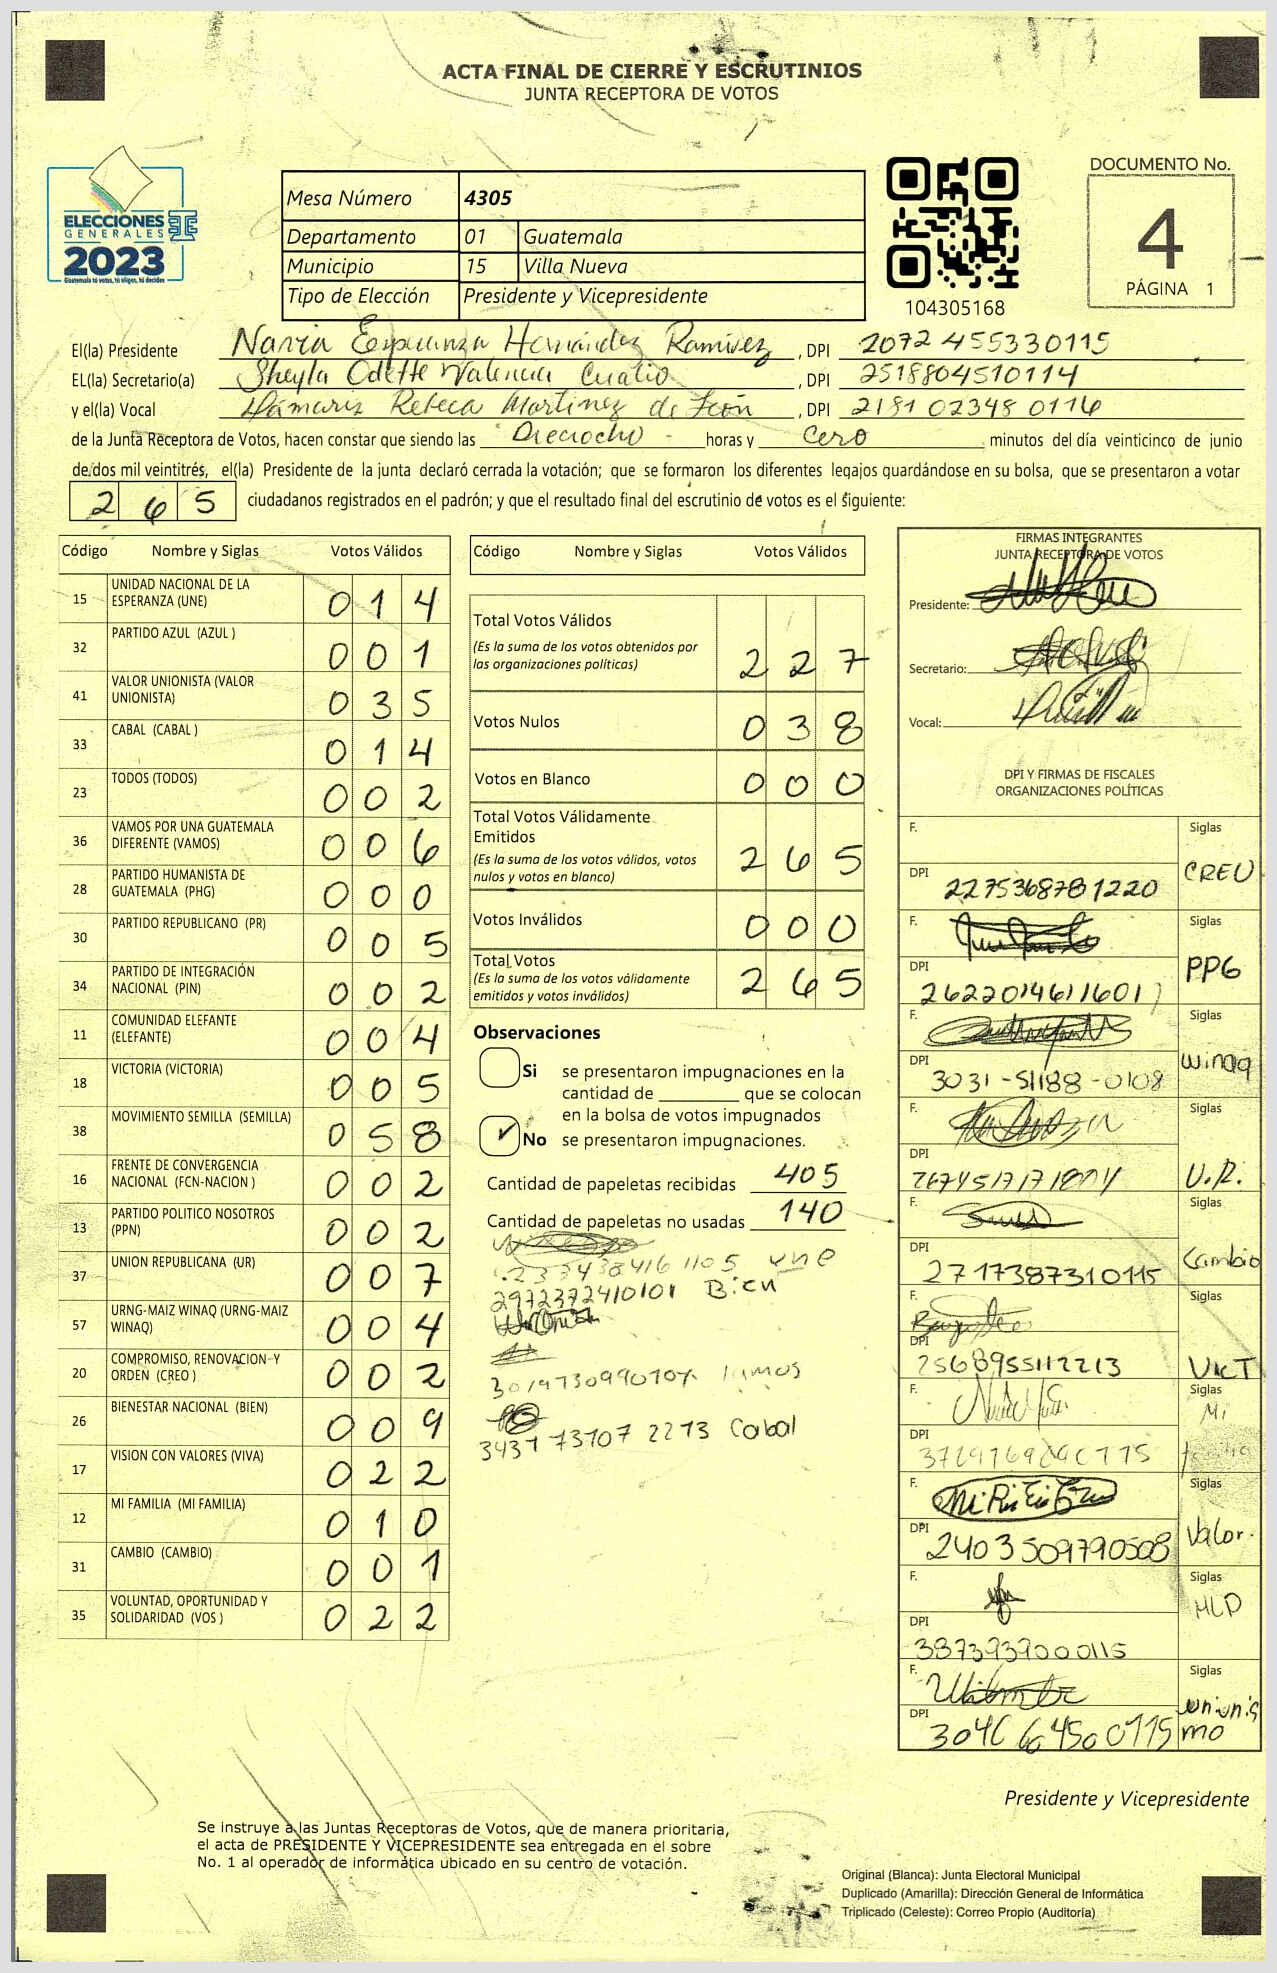 ACTA FINAL DE CIERRE Y ESCRUTINIOS
JUNTA RECEPTORA DE VOTOS
ELECCIONES
GENERALES
2023
Guatemala tú votas, tú eliges, tú decides
Mesa Número 4305
Departamento 01 Guatemala
Municipio 15 Villa Nueva
Tipo de Elección Presidente y Vicepresidente
104305168
DOCUMENTO No.
4
PÁGINA 1
El(la) Presidente Hernández Ramírez, DPI 2072 455330115
EL(la) Secretario(a) Sheyla Odette Valencia, DPI 2518804510114
y el(la) Vocal Dámaris Rebeca Martínez de León, DPI 2181 02348 0116
de la Junta Receptora de Votos, hacen constar que siendo las Dieciocho horas y Cero minutos del día veinticinco de junio
de dos mil veintitrés, el(la) Presidente de la junta declaró cerrada la votación; que se formaron los diferentes legajos guardándose en su bolsa, que se presentaron a votar
265 ciudadanos registrados en el padrón; y que el resultado final del escrutinio de votos es el siguiente:
Código Nombre y Siglas Votos Válidos
15 UNIDAD NACIONAL DE LA ESPERANZA (UNE) 014
32 PARTIDO AZUL (AZUL ) 001
41 VALOR UNIONISTA (VALOR UNIONISTA) 035
33 CABAL (CABAL ) 014
23 TODOS (TODOS) 002
36 VAMOS POR UNA GUATEMALA DIFERENTE (VAMOS) 006
28 PARTIDO HUMANISTA DE GUATEMALA (PHG) 000
30 PARTIDO REPUBLICANO (PR) 005
34 PARTIDO DE INTEGRACIÓN NACIONAL (PIN) 002
11 COMUNIDAD ELEFANTE (ELEFANTE) 004
18 VICTORIA (VICTORIA) 005
38 MOVIMIENTO SEMILLA (SEMILLA) 058
16 FRENTE DE CONVERGENCIA NACIONAL (FCN-NACION ) 002
13 PARTIDO POLITICO NOSOTROS (PPN) 002
37 UNION REPUBLICANA (UR) 007
57 URNG-MAIZ WINAQ (URNG-MAIZ WINAQ) 004
20 COMPROMISO, RENOVACION Y ORDEN (CREO ) 002
26 BIENESTAR NACIONAL (BIEN) 009
17 VISION CON VALORES (VIVA) 022
12 MI FAMILIA (MI FAMILIA) 010
31 CAMBIO (CAMBIO) 001
35 VOLUNTAD, OPORTUNIDAD Y SOLIDARIDAD (VOS ) 022
Código Nombre y Siglas Votos Válidos
Total Votos Válidos 227
(Es la suma de los votos obtenidos por
las organizaciones políticas)
Votos Nulos 038
Votos en Blanco 000
Total Votos Válidamente
Emitidos 265
(Es la suma de los votos válidos, votos
nulos y votos en blanco)
Votos Inválidos 000
Total Votos 265
(Es la suma de los votos válidamente
emitidos y votos inválidos)
Observaciones
Si se presentaron impugnaciones en la
cantidad de ________ que se colocan
en la bolsa de votos impugnados
✓ No se presentaron impugnaciones.
Cantidad de papeletas recibidas 405
Cantidad de papeletas no usadas 140
une
2972372410101 Bien
Cabal
FIRMAS INTEGRANTES
JUNTA RECEPTORA DE VOTOS
Presidente:
Secretario:
Vocal:
DPI Y FIRMAS DE FISCALES
ORGANIZACIONES POLÍTICAS
F. Siglas
DPI 2275368781220 CREO
F. Siglas
DPI PPG
F. Siglas
DPI 3031-51188-0108 Winaq
F. Siglas
DPI U.R.
F. Siglas
DPI 2717387310115 Cambio
F. Siglas
DPI 2568955112213 VICT
F. Siglas
DPI Mi
F. Siglas
DPI 2403509790508 Valor.
F. Siglas
DPI 3373939000115 MLP
F. Siglas
DPI unionismo
Presidente y Vicepresidente
Se instruye a las Juntas Receptoras de Votos, que de manera prioritaria,
el acta de PRESIDENTE Y VICEPRESIDENTE sea entregada en el sobre
No. 1 al operador de informática ubicado en su centro de votación.
Original (Blanca): Junta Electoral Municipal
Duplicado (Amarilla): Dirección General de Informática
Triplicado (Celeste): Correo Propio (Auditoría)